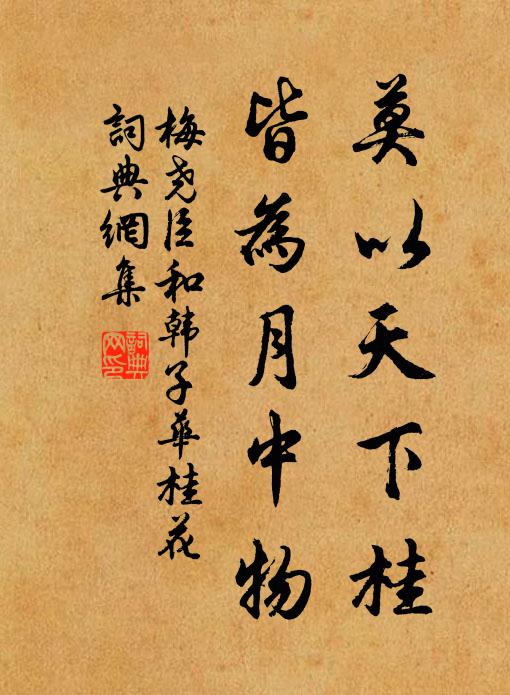 莫以天下桂
皆為月中物
梅尧臣和韩子華桂花
詞典網集
詞典网印